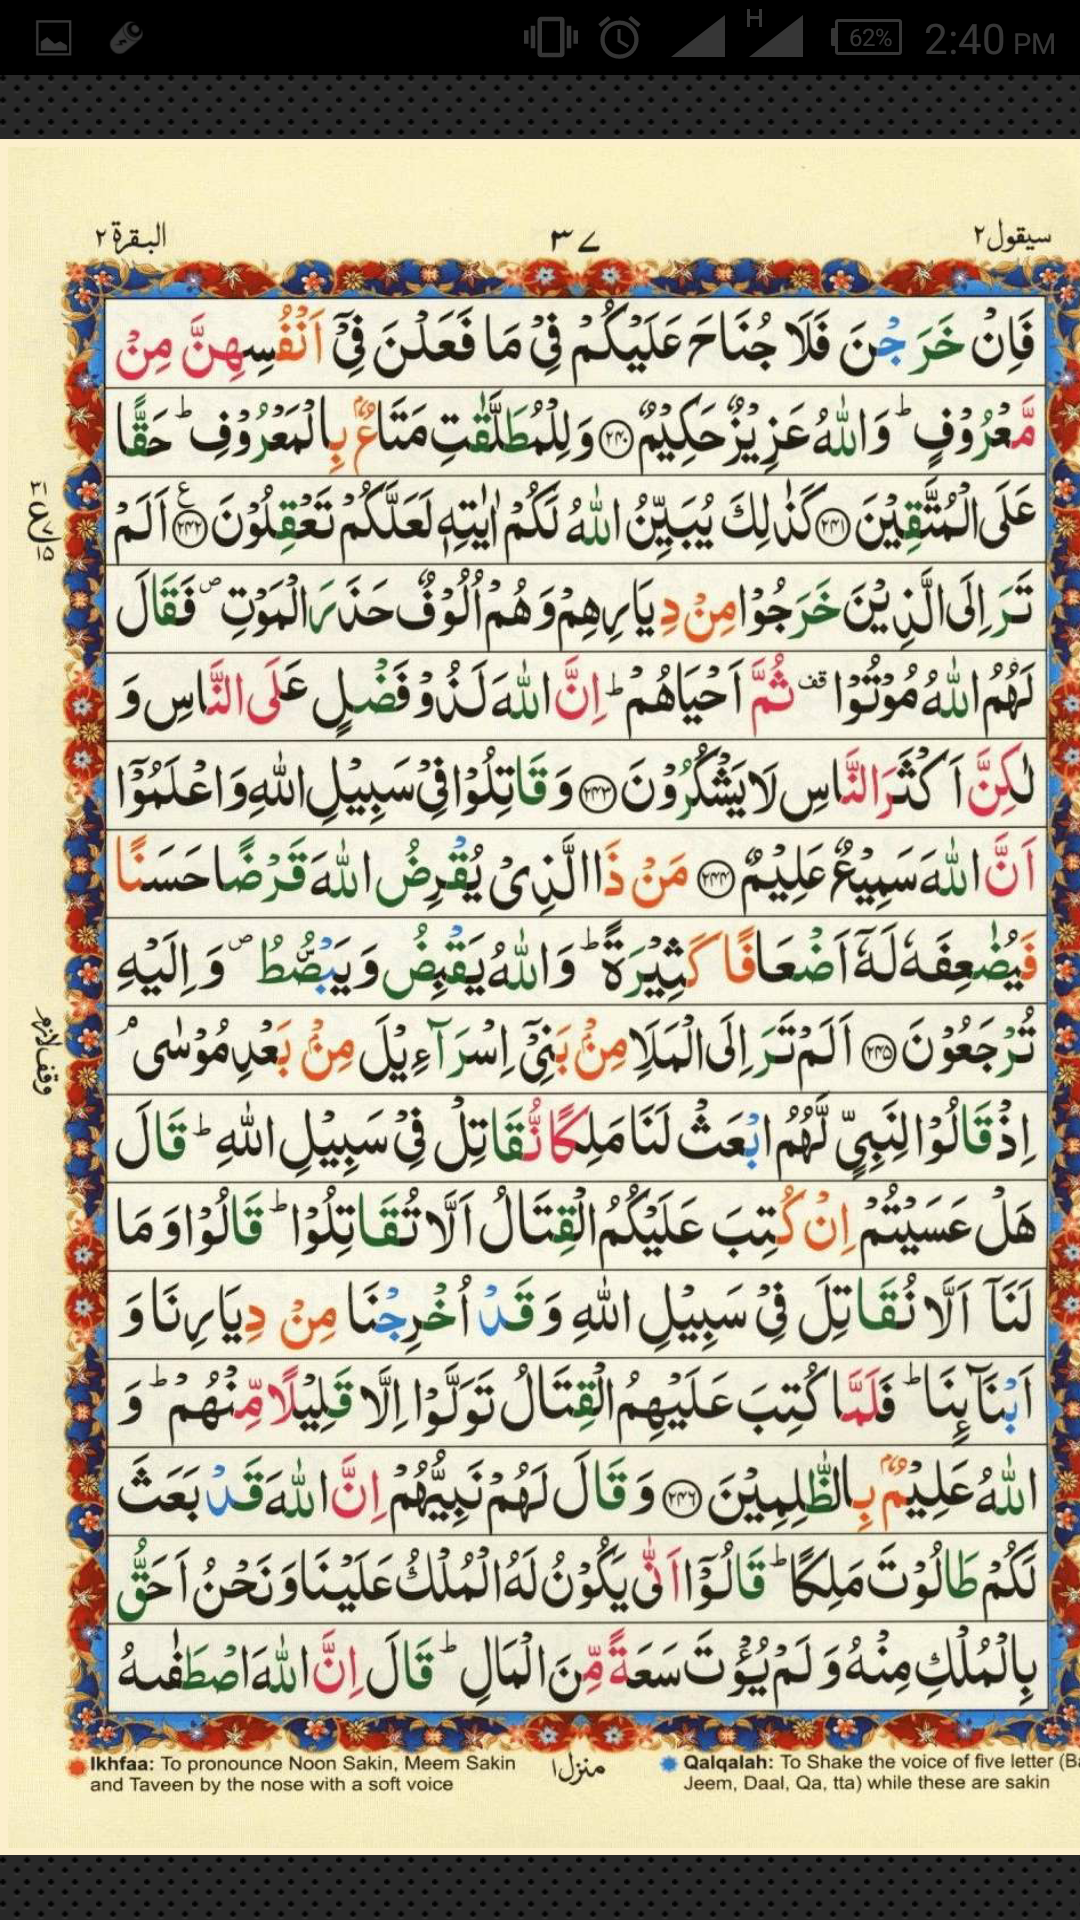 H 62% 2:40 PM
سيقول ٢ ٣٧ البقرة ٢
فَاِنْ خَرَجْنَ فَلَا جُنَاحَ عَلَيْكُمْ فِيْ مَا فَعَلْنَ فِيْٓ اَنْفُسِهِنَّ مِنْ
مَّعْرُوْفٍ ؕ وَاللّٰهُ عَزِيْزٌ حَكِيْمٌ ﴿۲۴۰﴾ وَلِلْمُطَلَّقٰتِ مَتَاعٌۢ بِالْمَعْرُوْفِ ؕ حَقًّا
عَلَى الْمُتَّقِيْنَ ﴿۲۴۱﴾ كَذٰلِكَ يُبَيِّنُ اللّٰهُ لَكُمْ اٰيٰتِهٖ لَعَلَّكُمْ تَعْقِلُوْنَ ﴿۲۴۲﴾ ع اَلَمْ
تَرَ اِلَى الَّذِيْنَ خَرَجُوْا مِنْ دِيَارِهِمْ وَهُمْ اُلُوْفٌ حَذَرَ الْمَوْتِ ۪ فَقَالَ
لَهُمُ اللّٰهُ مُوْتُوْا قف ثُمَّ اَحْيَاهُمْ ؕ اِنَّ اللّٰهَ لَذُوْ فَضْلٍ عَلَى النَّاسِ وَ
لٰكِنَّ اَكْثَرَ النَّاسِ لَا يَشْكُرُوْنَ ﴿۲۴۳﴾ وَقَاتِلُوْا فِيْ سَبِيْلِ اللّٰهِ وَاعْلَمُوْٓا
اَنَّ اللّٰهَ سَمِيْعٌ عَلِيْمٌ ﴿۲۴۴﴾ مَنْ ذَا الَّذِيْ يُقْرِضُ اللّٰهَ قَرْضًا حَسَنًا
فَيُضٰعِفَهٗ لَهٗٓ اَضْعَافًا كَثِيْرَةً ؕ وَاللّٰهُ يَقْبِضُ وَيَبْصُۜطُ ۪ وَاِلَيْهِ
تُرْجَعُوْنَ ﴿۲۴۵﴾ اَلَمْ تَرَ اِلَى الْمَلَاِ مِنْۢ بَنِيْٓ اِسْرَآءِيْلَ مِنْۢ بَعْدِ مُوْسٰى ۘ
اِذْ قَالُوْا لِنَبِيٍّ لَّهُمُ ابْعَثْ لَنَا مَلِكًا نُّقَاتِلْ فِيْ سَبِيْلِ اللّٰهِ ؕ قَالَ
هَلْ عَسَيْتُمْ اِنْ كُتِبَ عَلَيْكُمُ الْقِتَالُ اَلَّا تُقَاتِلُوْا ؕ قَالُوْا وَمَا
لَنَآ اَلَّا نُقَاتِلَ فِيْ سَبِيْلِ اللّٰهِ وَقَدْ اُخْرِجْنَا مِنْ دِيَارِنَا وَ
اَبْنَآئِنَا ؕ فَلَمَّا كُتِبَ عَلَيْهِمُ الْقِتَالُ تَوَلَّوْا اِلَّا قَلِيْلًا مِّنْهُمْ ؕ وَ
اللّٰهُ عَلِيْمٌۢ بِالظّٰلِمِيْنَ ﴿۲۴۶﴾ وَقَالَ لَهُمْ نَبِيُّهُمْ اِنَّ اللّٰهَ قَدْ بَعَثَ
لَكُمْ طَالُوْتَ مَلِكًا ؕ قَالُوْٓا اَنّٰى يَكُوْنُ لَهُ الْمُلْكُ عَلَيْنَا وَنَحْنُ اَحَقُّ
بِالْمُلْكِ مِنْهُ وَلَمْ يُؤْتَ سَعَةً مِّنَ الْمَالِ ؕ قَالَ اِنَّ اللّٰهَ اصْطَفٰىهُ
ع ١٥
وقف لازم
Ikhfaa: To pronounce Noon Sakin, Meem Sakin
and Taveen by the nose with a soft voice
منزل ١
Qalqalah: To Shake the voice of five letter (Ba
Jeem, Daal, Qa, tta) while these are sakin